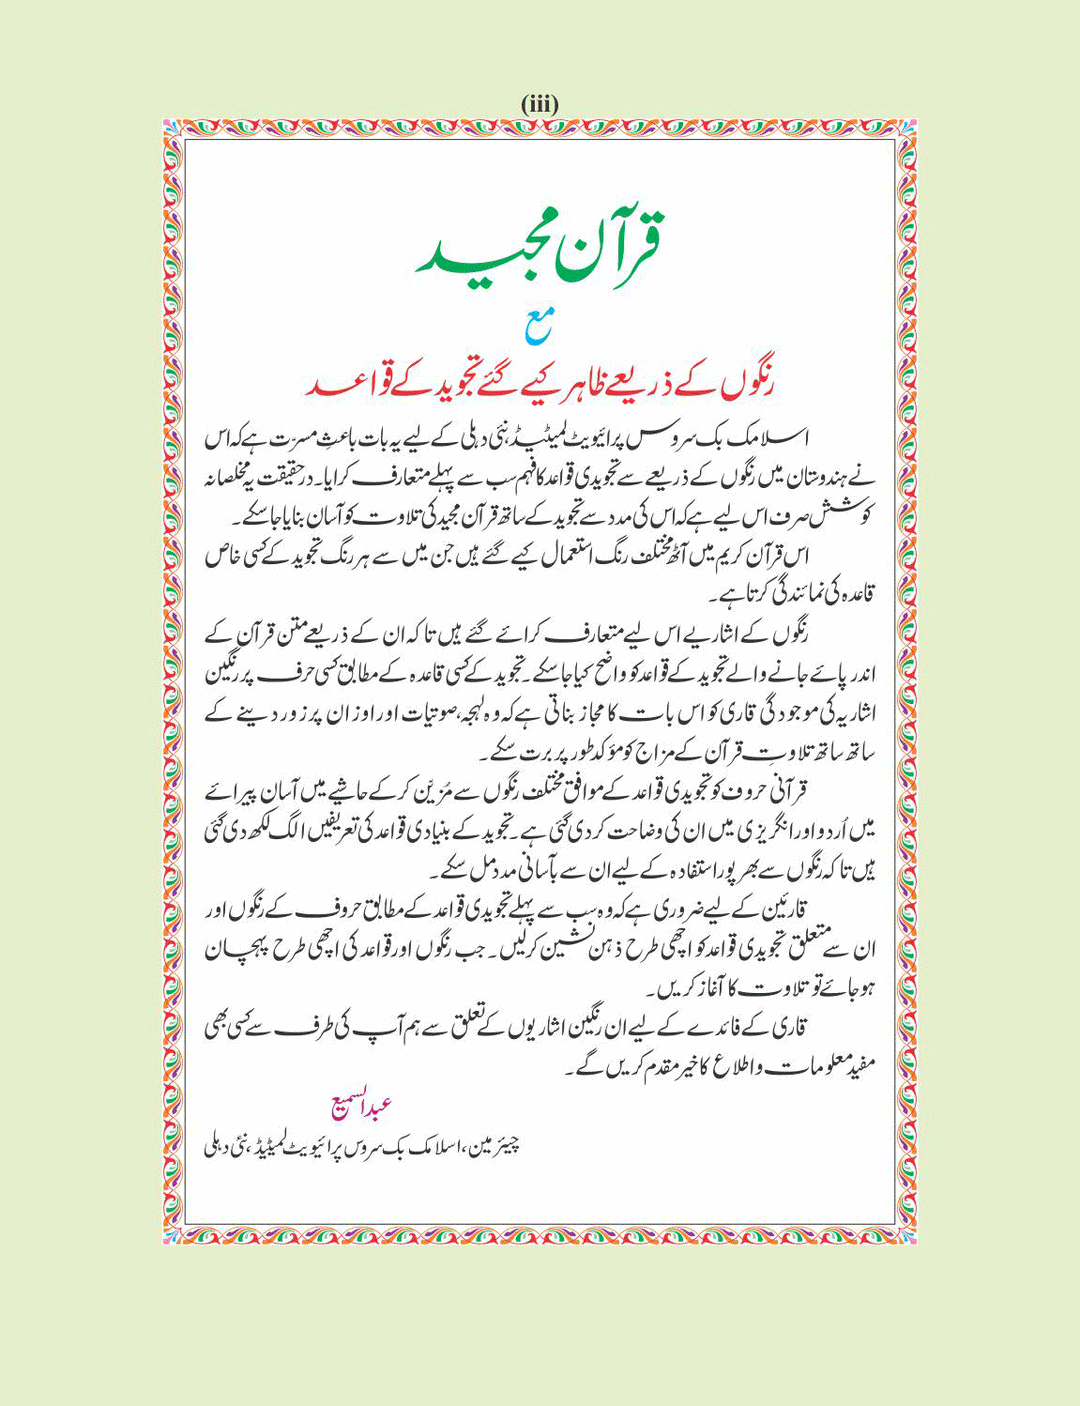 (iii)
قرآن مجید
مع
رنگوں کے ذریعے ظاہر کیے گئے تجوید کے قواعد
اسلامک بک سروس پرائیویٹ لمیٹیڈ، نئی دہلی کے لیے یہ بات باعثِ مسرّت ہے کہ اس
نے ہندوستان میں رنگوں کے ذریعے سے تجویدی قواعد کا فہم سب سے پہلے متعارف کرایا۔ درحقیقت یہ مخلصانہ
کوشش صرف اس لیے ہے کہ اس کی مدد سے تجوید کے ساتھ قرآن مجید کی تلاوت کو آسان بنایا جاسکے۔
اس قرآن کریم میں آٹھ مختلف رنگ استعمال کیے گئے ہیں جن میں سے ہر رنگ تجوید کے کسی خاص
قاعدہ کی نمائندگی کرتا ہے۔
رنگوں کے اشاریے اس لیے متعارف کرائے گئے ہیں تاکہ ان کے ذریعے متن قرآن کے
اندر پائے جانے والے تجوید کے قواعد کو واضح کیا جاسکے۔ تجوید کے کسی قاعدہ کے مطابق کسی حرف پر رنگین
اشاریہ کی موجودگی قاری کو اس بات کا مجاز بناتی ہے کہ وہ لہجہ، صوتیات اور اوزان پر زور دینے کے
ساتھ ساتھ تلاوتِ قرآن کے مزاج کو مؤکد طور پر برت سکے۔
قرآنی حروف کو تجویدی قواعد کے موافق مختلف رنگوں سے مُزیّن کرکے حاشیے میں آسان پیرائے
میں اُردو اور انگریزی میں ان کی وضاحت کردی گئی ہے۔ تجوید کے بنیادی قواعد کی تعریفیں الگ لکھ دی گئی
ہیں تاکہ رنگوں سے بھرپور استفادہ کے لیے ان سے بآسانی مدد مل سکے۔
قارئین کے لیے ضروری ہے کہ وہ سب سے پہلے تجویدی قواعد کے مطابق حروف کے رنگوں اور
ان سے متعلق تجویدی قواعد کو اچھی طرح ذہن نشین کرلیں۔ جب رنگوں اور قواعد کی اچھی طرح پہچان
ہوجائے تو تلاوت کا آغاز کریں۔
قاری کے فائدے کے لیے ان رنگین اشاریوں کے تعلق سے ہم آپ کی طرف سے کسی بھی
مفید معلومات و اطلاع کا خیر مقدم کریں گے۔
عبدالسمیع
چیئرمین، اسلامک بک سروس پرائیویٹ لمیٹیڈ، نئی دہلی